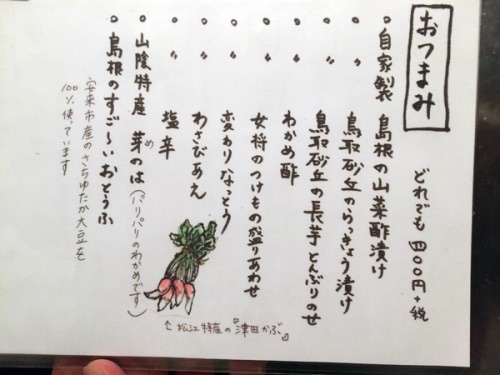 おつまみ
どれでも 四〇〇円+税
○自家製 島根の山菜酢漬け
○〃 鳥取砂丘のらっきょう漬け
○〃 鳥取砂丘の長芋とんぶりのせ
○〃 わかめ酢
○〃 女将のつけもの盛りあわせ
○〃 変わりなっとう
○〃 わさびあえ
○〃 塩辛
○山陰特産 芽のは(パリパリのわかめです)
め
○島根のすご〜いおとうふ
安来市産のさちゆたか大豆を
100%使っています
↑松江特産の『津田かぶ』